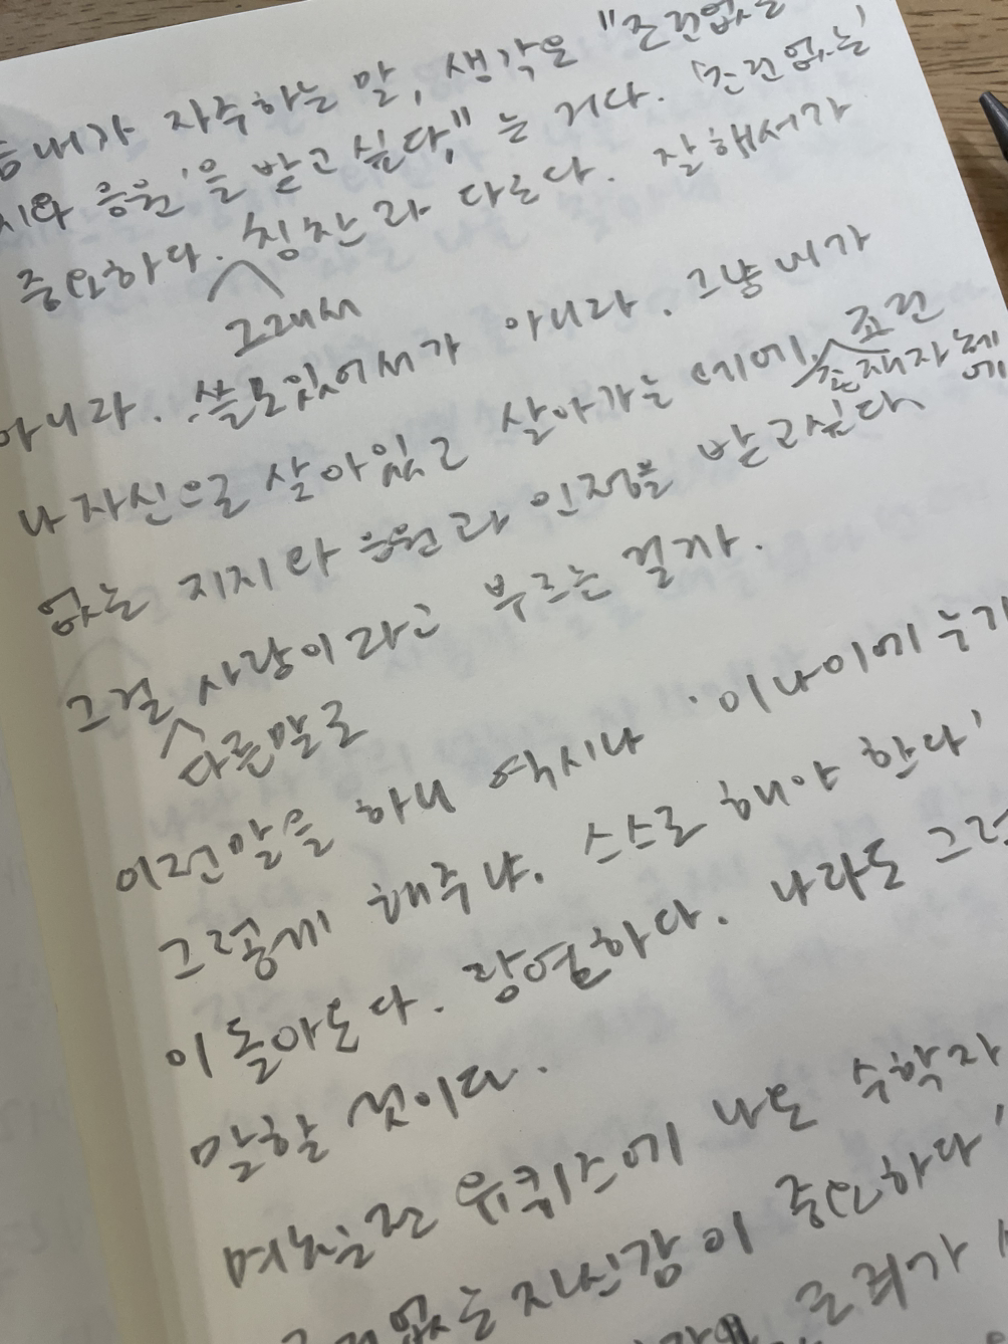 내가 자주하는 말, 생각은 "조건없는
지와 응원'을 받고 싶다," 는 거다. '조건없는'
중요하다. 칭찬과 다르다. 잘해서가
그래서
아니라. 쓸모있어서가 아니라. 그냥 내가
나 자신으로 살아있고 살아가는 데에 조건
존재자체에
없는 지지와 응원과 인정을 받고싶다
그걸 사랑이라고 부르는 걸까.
다른말로
이런말을 하니 역시나 '이나이에 누가
그렇게 해주냐. 스스로 해야 한다'
이 돌아온다. 당연하다. 나라도 그렇
말할 것이다.
며칠전 유퀴즈에 나온 수학자
없는 자신감이 중요하다'